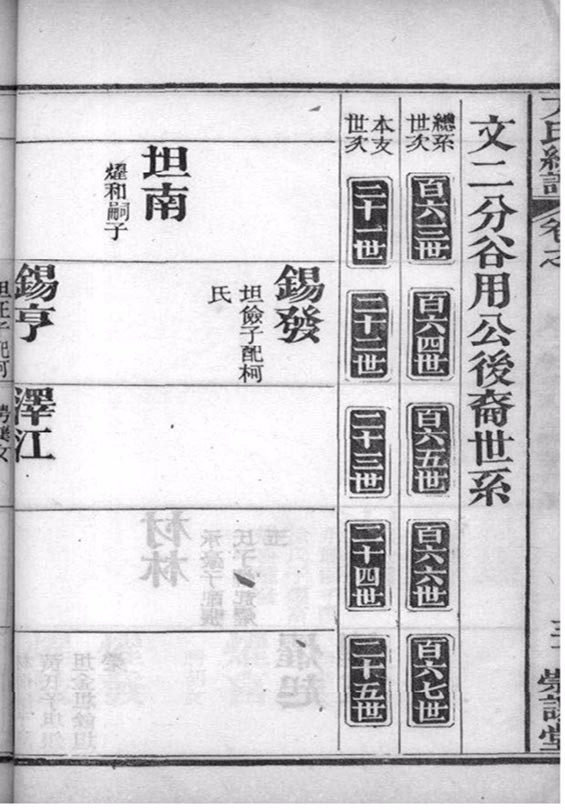 文二分谷用公後裔世系
總系世次
百六三世
百六四世
百六五世
百六六世
百六七世
本支世次
二十一世
二十二世
二十三世
二十四世
二十五世
錫發
坦儉子配柯
氏
坦南
燿和嗣子
錫亨
澤江